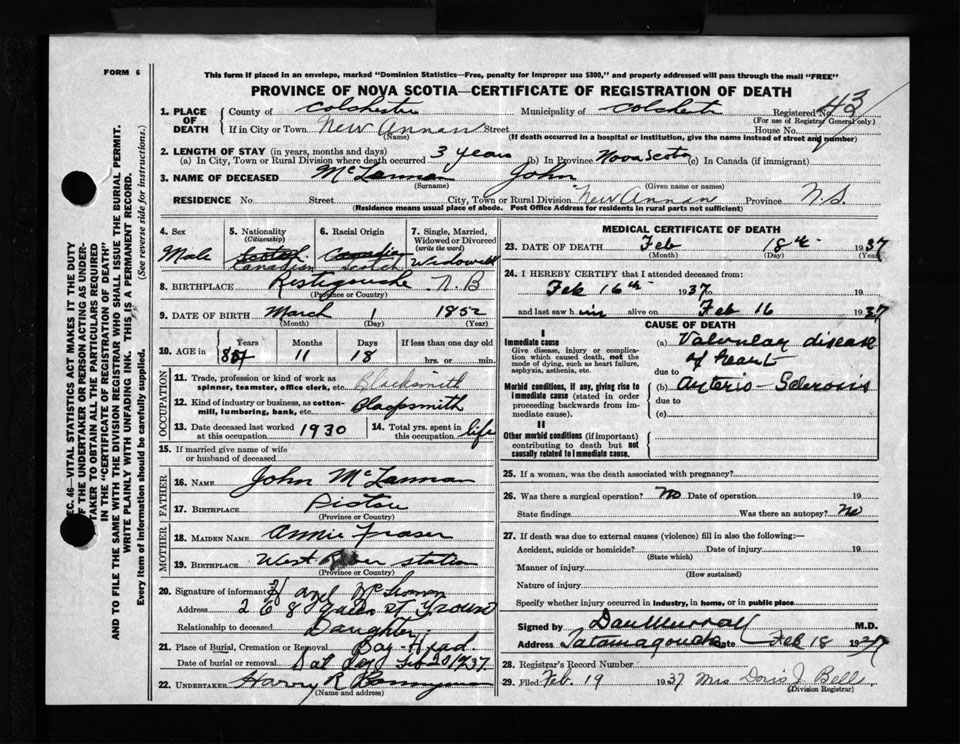 FORM 6
This form if placed in an envelope, marked "Dominion Statistics—Free, penalty for improper use $300," and properly addressed will pass through the mail "FREE"
PROVINCE OF NOVA SCOTIA—CERTIFICATE OF REGISTRATION OF DEATH
1. PLACE OF DEATH
County of Colchester Municipality of Colchester Registered No. 43
(For use of Registrar General only)
If in City or Town New Annan Street House No.
(Name) (If death occurred in a hospital or institution, give the name instead of street and number)
2. LENGTH OF STAY (in years, months and days)
(a) In City, Town or Rural Division where death occurred 3 years (b) In Province Nova Scotia (c) In Canada (if immigrant)
3. NAME OF DECEASED McLannan John
(Surname) (Given name or names)
RESIDENCE No Street City, Town or Rural Division New Annan Province N.S.
(Residence means usual place of abode. Post Office Address for residents in rural parts not sufficient)
4. Sex Male
5. Nationality (Citizenship) Scotch Canadian
6. Racial Origin Canadian Scotch
7. Single, Married, Widowed or Divorced (write the word) Widowed
8. BIRTHPLACE Restigouche N.B
(Province or Country)
9. DATE OF BIRTH March 1 1852
(Month) (Day) (Year)
10. AGE in Years Months 11 Days 18 If less than one day old hrs. or min.
OCCUPATION
11. Trade, profession or kind of work as spinner, teamster, office clerk, etc. Blacksmith
12. Kind of industry or business, as cotton-mill, lumbering, bank, etc. Blacksmith
13. Date deceased last worked at this occupation 1930
14. Total yrs. spent in this occupation life
15. If married give name of wife or husband of deceased
FATHER
16. NAME John McLannan
17. BIRTHPLACE Pictou
(Province or Country)
MOTHER
18. MAIDEN NAME Annie Fraser
19. BIRTHPLACE West River Station
(Province or Country)
20. Signature of informant Hazel
Address 268 Queen St Truro
Relationship to deceased Daughter
21. Place of Burial, Cremation or Removal Bay Head
Date of burial or removal Feb 20/1937
22. UNDERTAKER Harry R
(Name and address)
MEDICAL CERTIFICATE OF DEATH
23. DATE OF DEATH Feb 18th 1937
(Month) (Day) (Year)
24. I HEREBY CERTIFY that I attended deceased from:
Feb 16th 1937 to 19
and last saw him alive on Feb 16 1937
CAUSE OF DEATH
I
Immediate cause
Give disease, injury or complication which caused death, not the mode of dying, such as heart failure, asphyxia, asthenia, etc.
(a) Valvular disease of heart
due to
Morbid conditions, if any, giving rise to immediate cause (stated in order proceeding backwards from immediate cause).
(b) Arterio-Sclerosis
due to
(c)
II
Other morbid conditions (if important) contributing to death but not causally related to immediate cause.
25. If a woman, was the death associated with pregnancy?
26. Was there a surgical operation? No Date of operation 19
State findings Was there an autopsy? No
27. If death was due to external causes (violence) fill in also the following:—
Accident, suicide or homicide? Date of injury 19
(State which)
Manner of injury
(How sustained)
Nature of injury
Specify whether injury occurred in industry, in home, or in public place
Signed by Dan Murray M.D.
Address Tatamagouche Date Feb 18 1937
28. Registrar's Record Number
29. Filed Feb. 19 1937 Mrs Doris J. Bell
(Division Registrar)
SEC. 46—VITAL STATISTICS ACT MAKES IT THE DUTY
OF THE UNDERTAKER OR PERSON ACTING AS UNDER-
TAKER TO OBTAIN ALL THE PARTICULARS REQUIRED
IN THE "CERTIFICATE OF REGISTRATION OF DEATH"
AND TO FILE THE SAME WITH THE DIVISION REGISTRAR WHO SHALL ISSUE THE BURIAL PERMIT.
WRITE PLAINLY WITH UNFADING INK. THIS IS A PERMANENT RECORD.
Every item of Information should be carefully supplied. (See reverse side for instructions.)